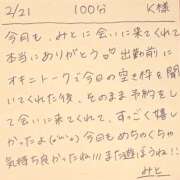 2/21 100分 K様
今日も、みとに会いに来てくれて
本当にありがとう♡ 出勤前に
オキニトークで今日の空き枠を聞
いてくれた後、そのまま予約をし
て会いに来てくれて、すっごく嬉し
かったよ(ハハ)今日もめちゃくちゃ
気持ち良かったね!!!また遊ぼうね!!
みと